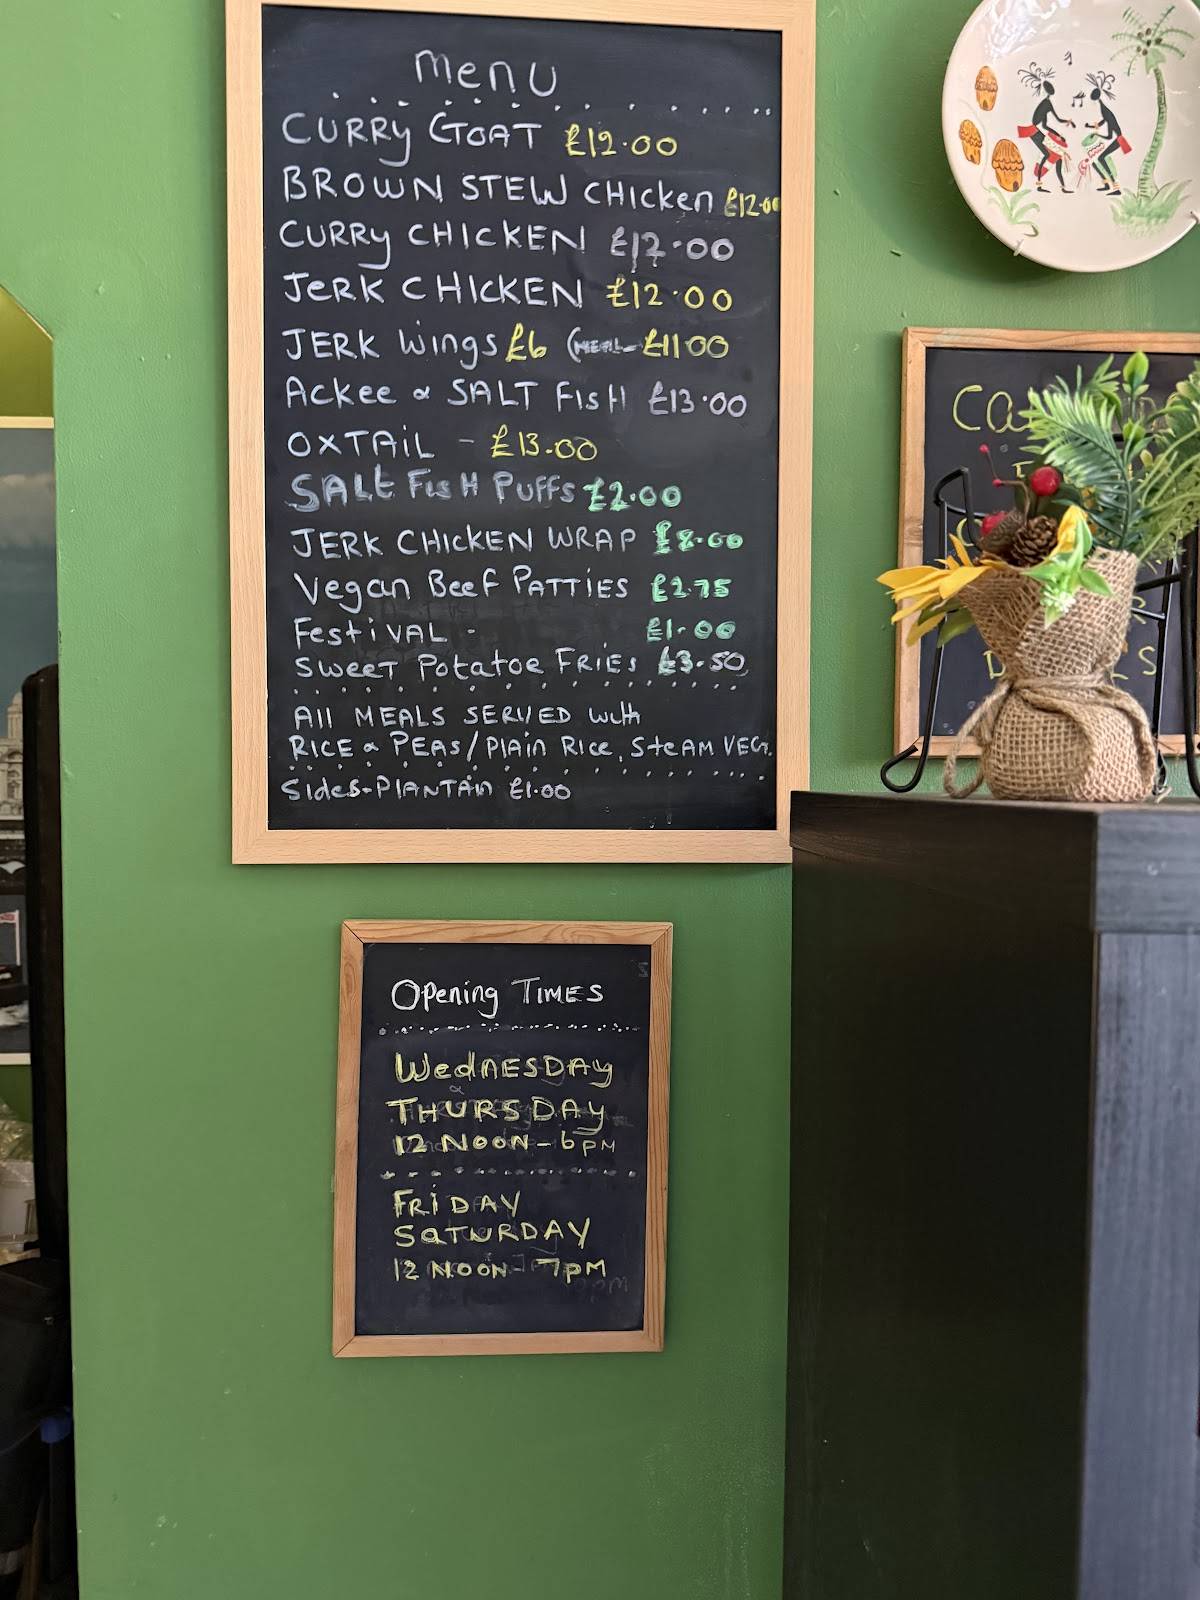 Menu
CURRY GOAT £12.00
BROWN STEW CHICKEN £12.00
CURRY CHICKEN £12.00
JERK CHICKEN £12.00
JERK Wings £6 (MEAL- £11.00
Ackee & SALT FisH £13.00
OXTAiL - £13.00
SALt FisH Puffs £2.00
JERK CHICKEN WRAP £8.00
Vegan Beef PATTiES £2.75
FestiVAL - £1.00
SWEET Potatoe FRiES £3.50
All MEALS SERVED with
RICE & PEAs/Plain Rice, SteAM VEG.
Sides-PlANTAin £1.00
Opening TIMES
WednESDAY
&
THURSDAY
12 NOON - 6PM
FRiDAY
SaTURDAY
12 NOON - 7PM